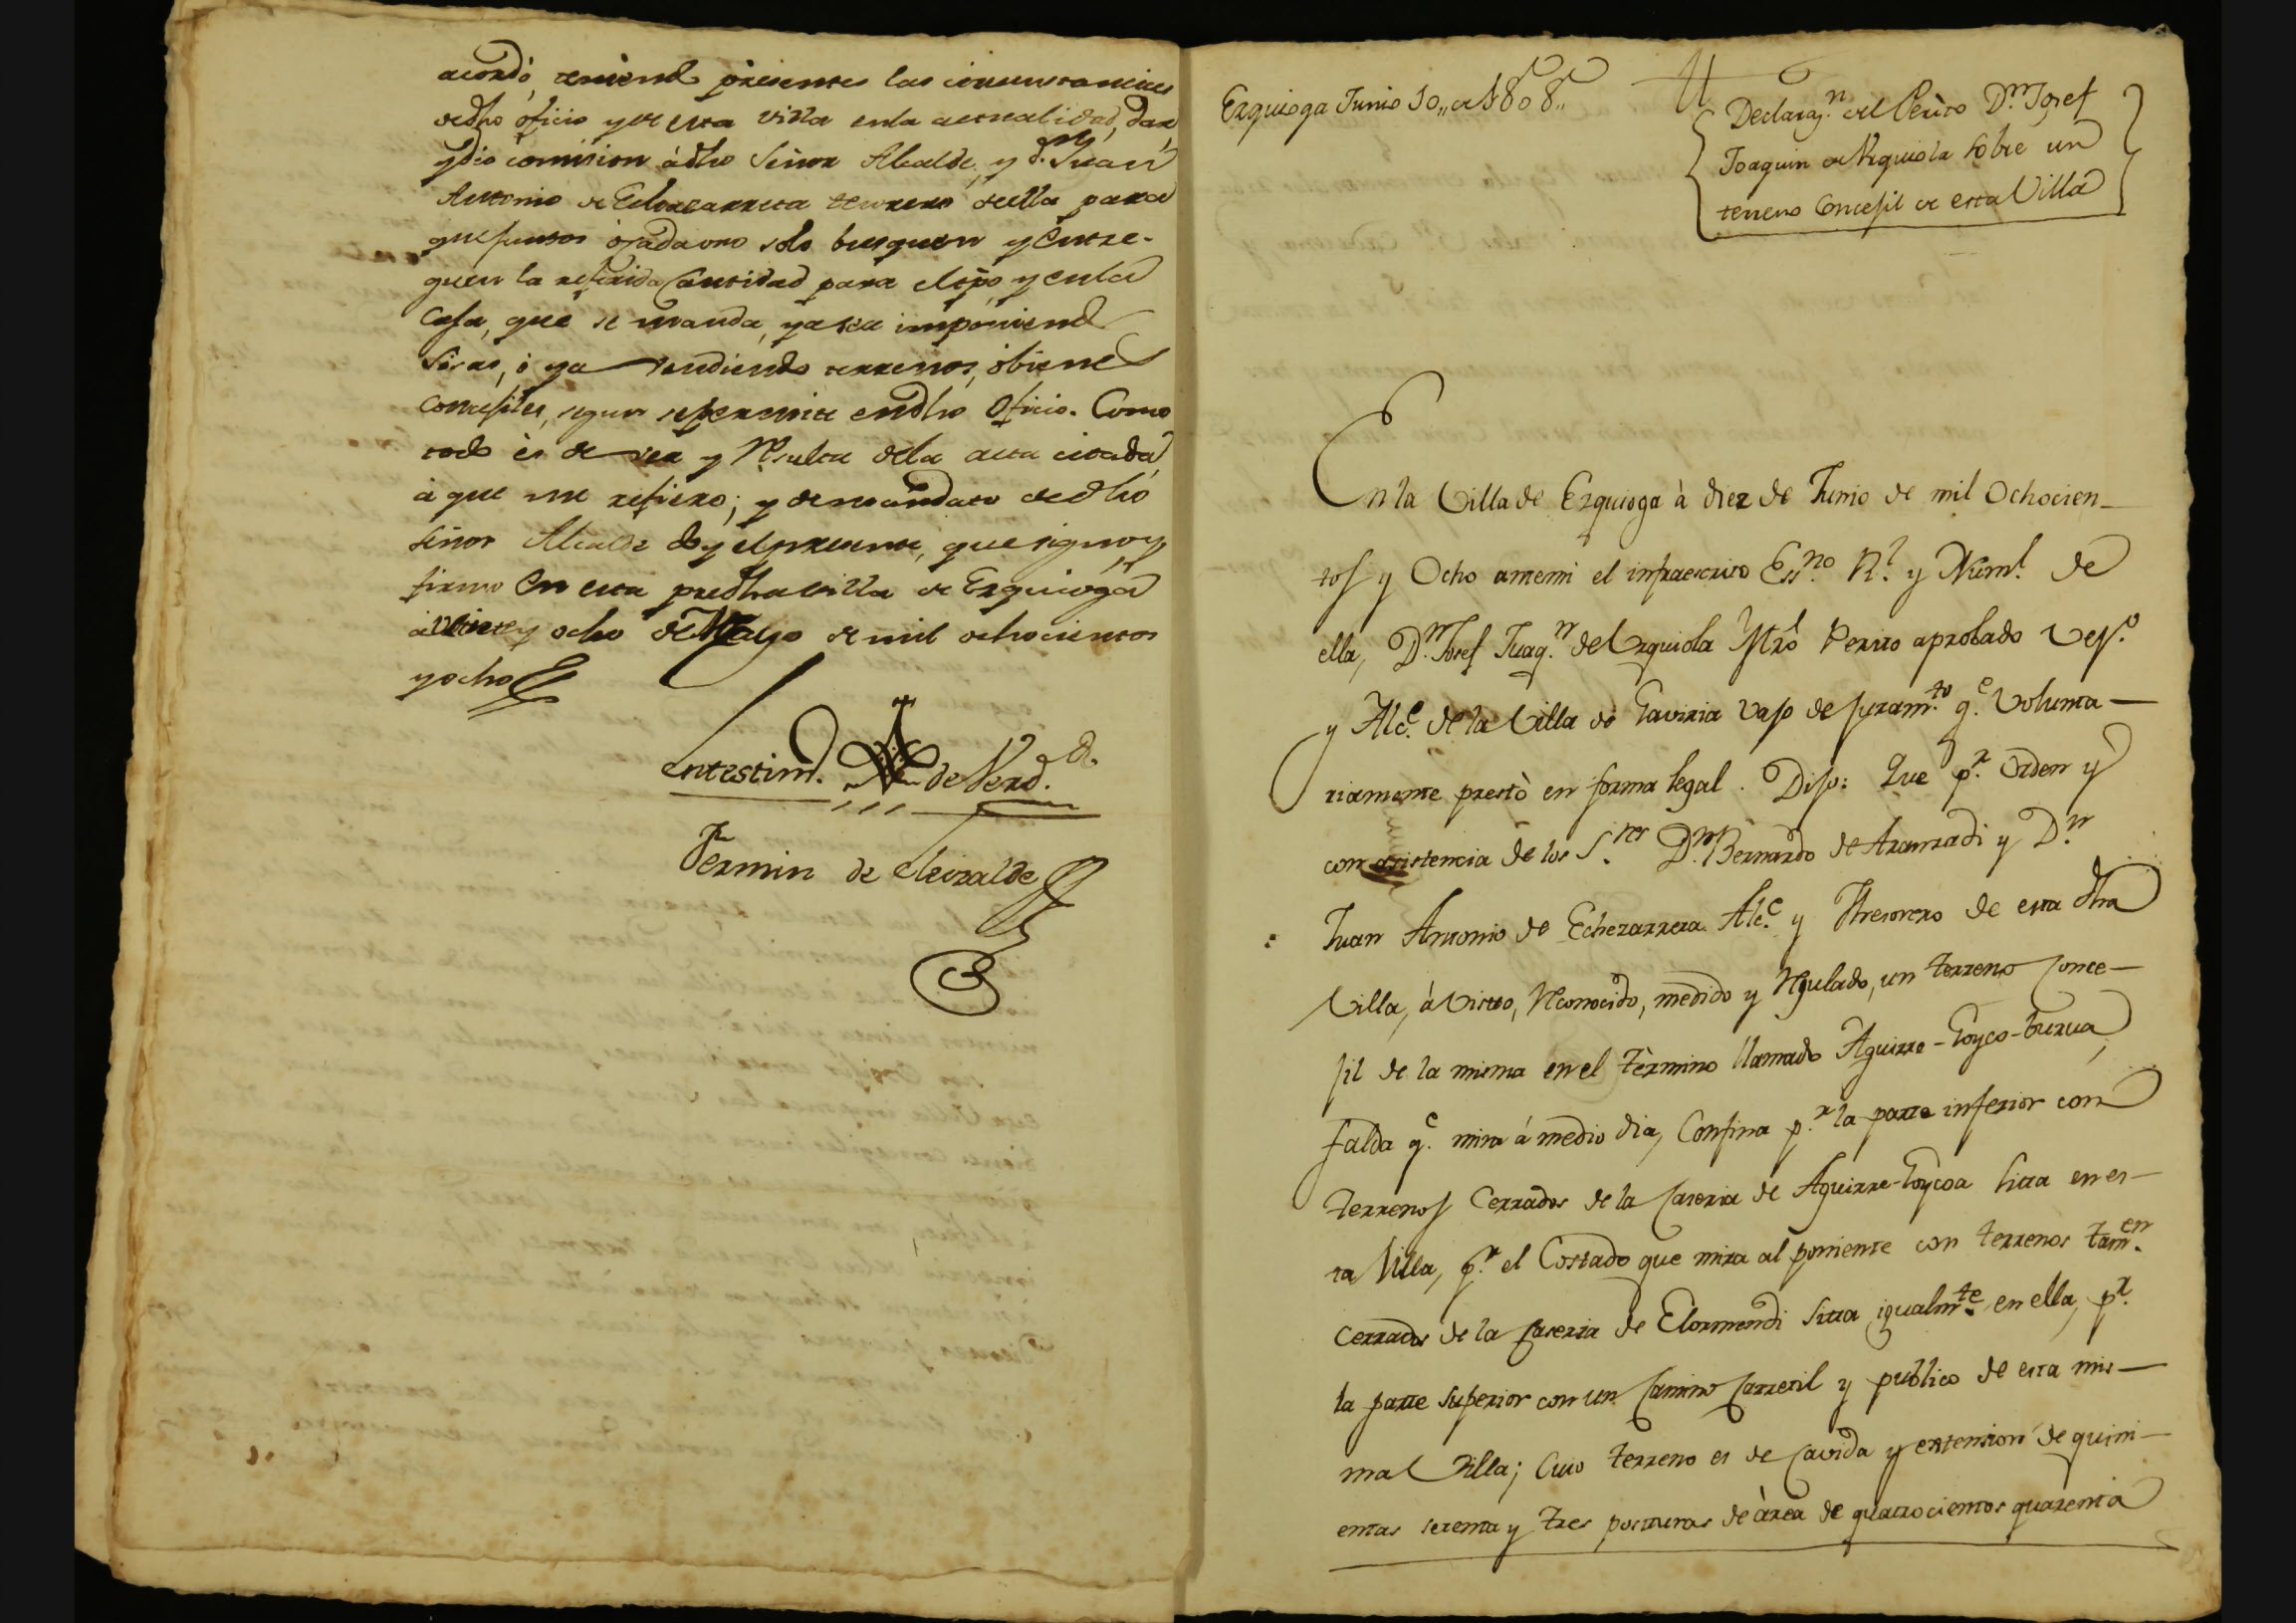 acordó, teniend presentes las circunstancias
dedho oficio y de esta villa enla actualidad, dar
y dio comision ádho Señor Alcalde, y d.n Juan
Antonio de Echezarreta tesorero deella para
que juntos ó cada uno solo busquen y entre-
guen la referida Cantidad para eltpo, y enla
Casa, que se manda, ya sea imponiend
sisas, ó ya vendiendo terrenos, óbienes
concejiles, segun sepermite endho Oficio. Como
todo és de ver y Resulta dela acta citada,
á que me refiero; y demandato dedho
señor Alcalde doy elpresente, que signo y
firmo En esta predha villa de Ezquioga
á veinte y ocho de Mayo de mil ochocientos
y ocho
Entestim.o de Verd.d
Fermin de Eleizalde
Ezquioga Junio 10,, de 1808,,
Declaraz.n del Perito D.n Josef
Joaquin de Urquiola sobre un
terreno Concejil de esta Villa
En la Villa de Ezquioga à diez de Junio de mil Ochocien-
tos y Ocho antemi el infraescrito Ess.no R.l y Num.l de
ella, D.n Josef Juaq.n de Urquiola Mro Perito aprobado Vez.o
y Alc.e de la Villa de Gaviria vajo de juram.to q.e volunta-
riamente prestò en forma legal. Dijo: Que p.r orden y
con asistencia de los S.res D.n Bernardo de Aranzadi y D.n
Juan Antonio de Echezarreta Alc.e y Thesorero de esta dha
Villa, à visto, Reconocido, medido y Regulado, un terreno conce-
jil de la misma en el tèrmino llamado Aguirre-Goyco-burua,
falda q.e mira á medio dia, Confina p.r la parte inferior con
terrenos Cerrados de la Caseria de Aguirre-Goycoa sita en es-
ta Villa, p.r el Costado que mira al poniente con terrenos tam.en
cerrados de la Caseria de Elormendi sita igualm.te en ella, p.r
la parte superior con un Camino Carretil y publico de esta mis-
ma Villa; Cuio terreno es de Cavida y extension de quini-
entas setenta y tres posturas de àrea de quatrocientos quarenta